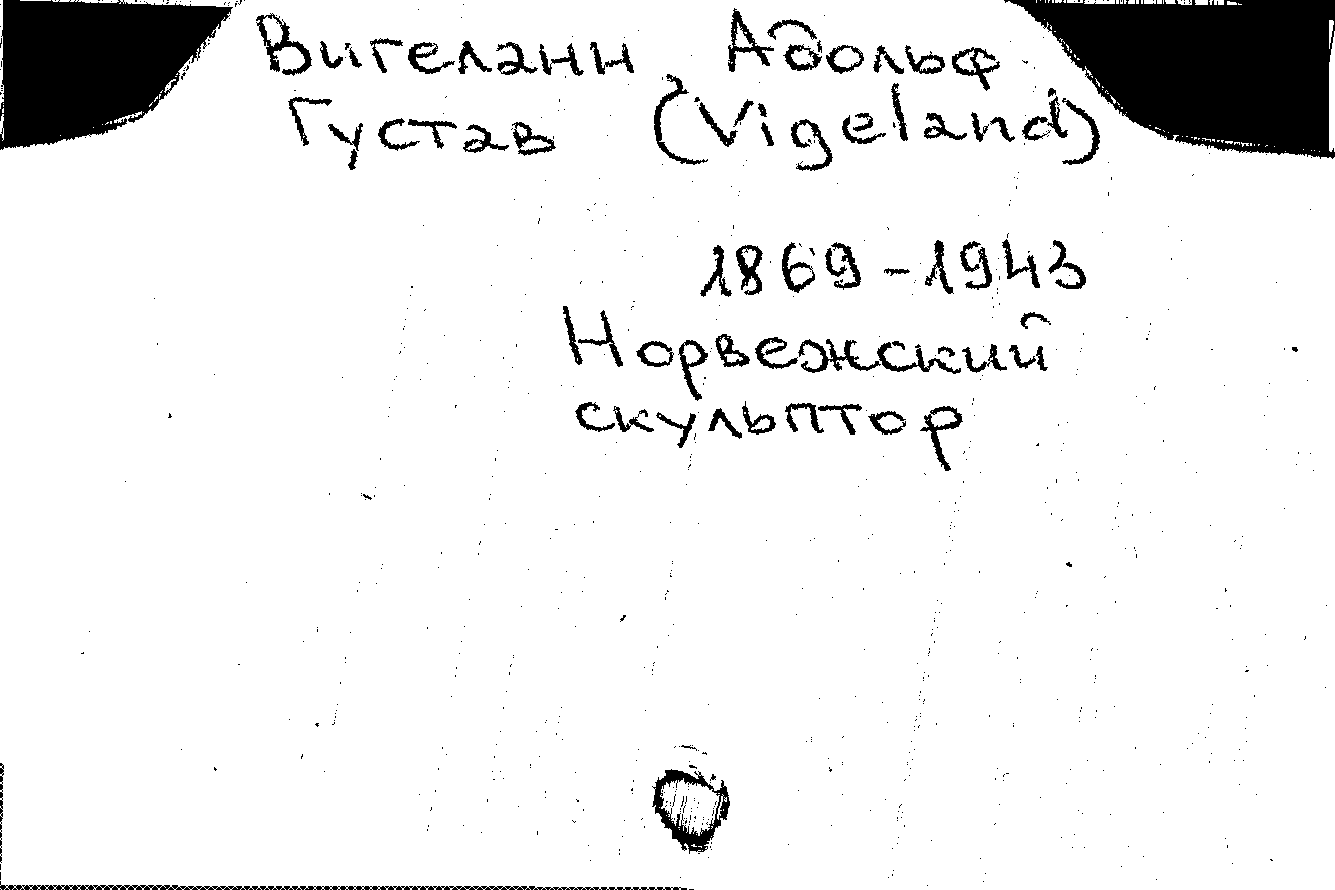 Вигеланн, Адольф
Густав (Vigeland)
1869-1943
Норвежский
скульптор